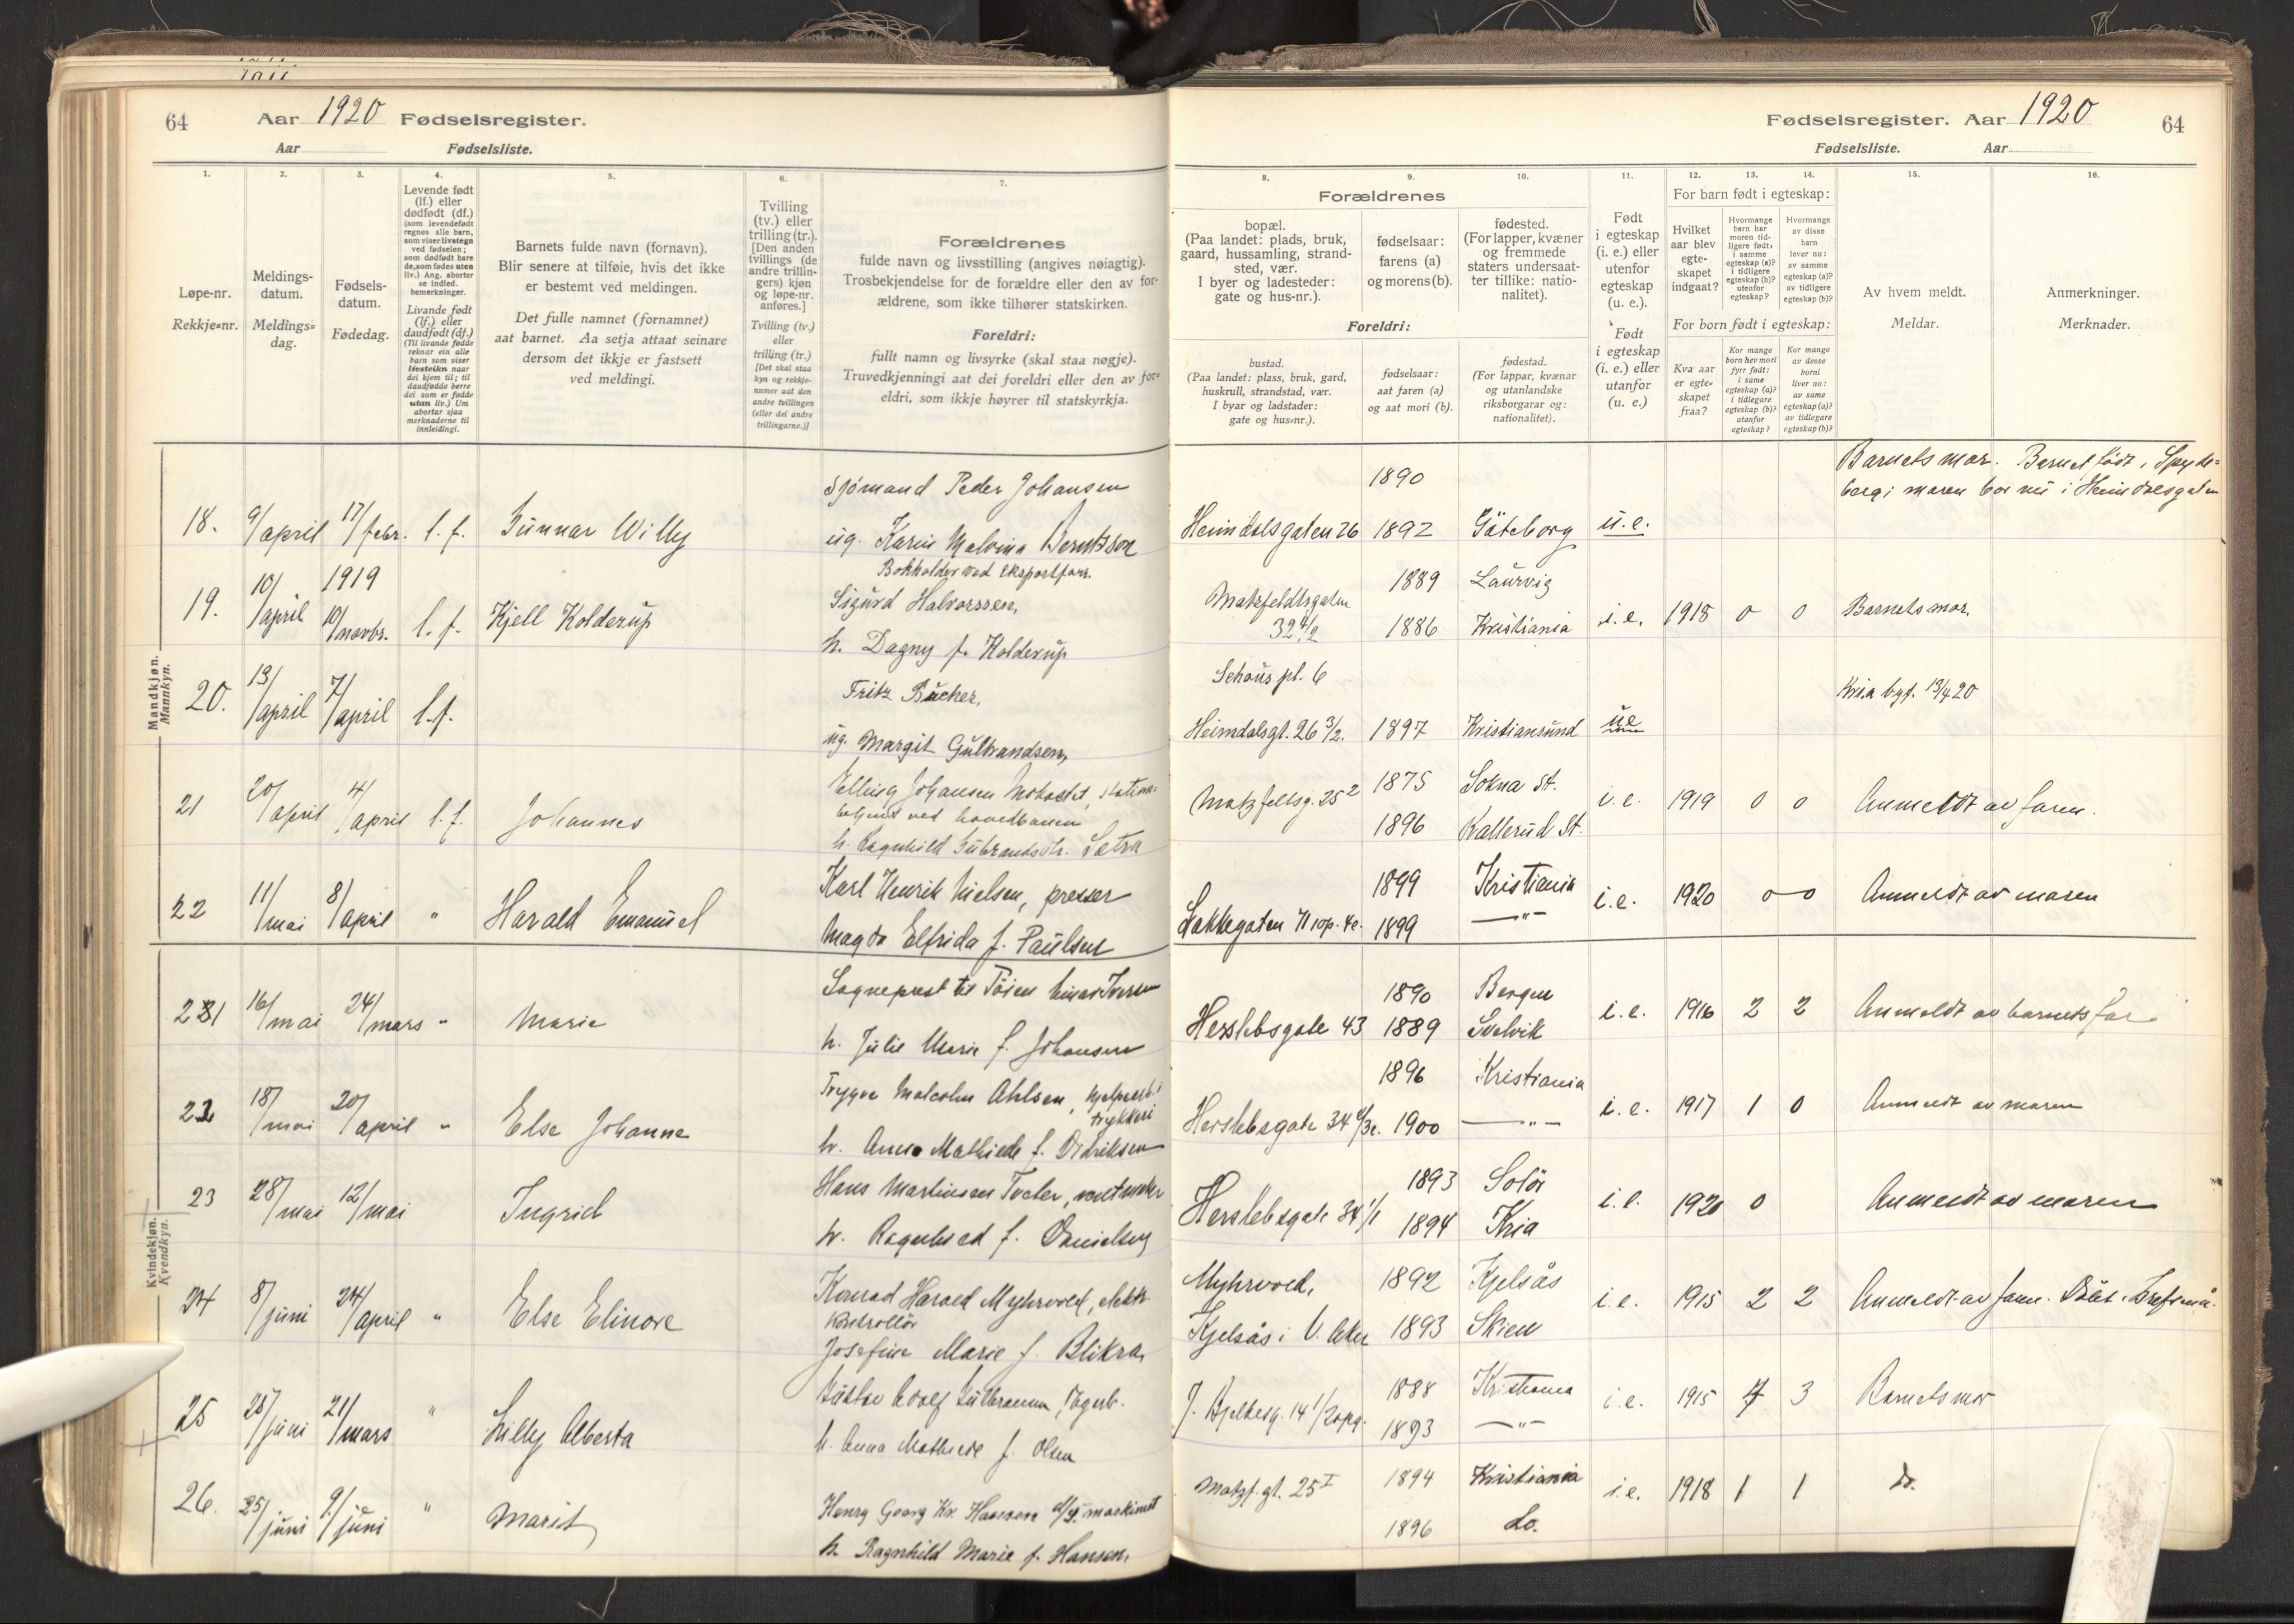 64 Aar 1920 Fødselsregister.
Aar Fødselsliste.
Fødselsregister. Aar 1920 64
Fødselsliste. Aar
1. 2. 3. 4. 5. 6. 7.
Løpe-nr.
Rekkje=nr.
Meldings-
datum.
Meldings=
dag.
Fødsels-
datum.
Fødedag.
Levende født
(lf.) eller
dødfødt (df.)
(som levendefødt
regnes alle barn,
som viser livstegn
ved fødselen;
som dødfødt bare
de, som fødes uten
liv.) Ang. aborter
se indled.
bemerkninger.
Livande født
(lf.) eller
daudfødt (df.)
(Til livande fødde
reknar ein alle
barn som viser
livsteikn naar
dei kjem til; til
daudfødde berre
dei som er fødde
utan liv.) Um
abortar sjaa
merknaderne til
innleidingi.
Barnets fulde navn (fornavn).
Blir senere at tilføie, hvis det ikke
er bestemt ved meldingen.
Det fulle namnet (fornamnet)
aat barnet. Aa setja attaat seinare
dersom det ikkje er fastsett
ved meldingi.
Tvilling
(tv.) eller
trilling (tr.).
[Den anden
tvillings (de
andre trillin-
gers) kjøn
og løpe-nr.
anføres.]
Tvilling (tv.)
eller
trilling (tr.)
[Det skal staa
kyn og rekkje-
numer aat den
andre tvillingen
(eller dei andre
trillingarne.)]
Forældrenes
fulde navn og livsstilling (angives nøiagtig).
Trosbekjendelse for de forældre eller den av for-
ældrene, som ikke tilhører statskirken.
Foreldri:
fullt namn og livsyrke (skal staa nøgje).
Truvedkjenningi aat dei foreldri eller den av for=
eldri, som ikkje høyrer til statskyrkja.
8. 9. 10. 11. 12. 13. 14. 15. 16.
Forældrenes
bopæl.
(Paa landet: plads, bruk,
gaard, hussamling, strand-
sted, vær.
I byer og ladesteder:
gate og hus-nr.).
fødselsaar:
farens (a)
og morens (b).
fødested.
(For lapper, kvæner
og fremmede
staters undersaat-
ter tillike: natio-
nalitet).
Foreldri:
bustad.
(Paa landet: plass, bruk, gard,
huskrull, strandstad, vær.
I byar og ladstader:
gate og hus=nr.).
fødselsaar:
aat faren (a)
og aat mori (b).
fødestad.
(For lappar, kvænar
og utanlandske
riksborgarar og:
nationalitet).
Født
i egteskap
(i. e.) eller
utenfor
egteskap
(u. e.).
Født
i egteskap
(i. e.) eller
utanfor
(u. e.)
For barn født i egteskap:
Hvilket
aar blev
egte-
skapet
indgaat?
Hvormange
barn har
moren tid-
ligere født:
i samme
egteskap (a)?
i tidligere
egteskap (b)?
utenfor
egteskap?
Hvormange
av disse
barn
lever nu:
av samme
egteskap (a)?
av tidligere
egteskap (b)?
For born født i egteskap:
Kva aar
er egte=
skapet
fraa?
Kor mange
born hev mori
fyrr født:
i same
egteskap (a)?
i tidlegare
egteskap (b)?
utanfor
egteskap?
Kor mange
av desse
borni
liver no:
av same
egteskap (a)?
av tidlegare
egteskap (b)?
Av hvem meldt.
Meldar.
Anmerkninger.
Merknader.
Mandkjøn.
Mannkyn.
18. 9/april 17/febr. l. f. Gunnar Willy
Sjömand Peder Johansen
ug. Karin Malvina Berntsson
1890
Heimdalsgaten 26 1892 Göteborg u. e.
Barnets mor. Barnet født i Spyde=
berg; moren bor nu i Heimdalsgaten
19. 10/april 1919 10/novbr. l. f. Kjell Kolderup
Bokholder ved Eksportforr.
Sigurd Halvorssen,
h. Dagny f. Kolderup
Matzfeldtsgaten
32 4/2
1889 Laurvig
1886 Kristiania
i. e. 1918 0 0 Barnets mor.
20. 13/april 7/april l. f.
Fritz Bücher,
ug. Margit Gulbrandsen,
Schous pl. 6
Heimdalsgt. 26 3/2. 1897 Kristiansund ue
Kria byf. 13/4 20
21 20/april 4/april l. f. Johannes
Elling Johansen
betjent ved hovedbanen
h. Ragnhild Gulbrandsdtr. Sætra
Matzfeltsg. 25 2
1875 Sokna St.
1896 Kallerud St.
i. e. 1919 0 0 Anmeldt av faren.
22 11/mai 8/april " Harald Emanuel
Karl Henrik Nielsen, presser
Magda Elfrida f. Paulsen
Lakkegaten 71 op. 4e.
1899 Kristiania
1899 —"—
i. e. 1920 0 0 Anmeldt av moren
Kvindekjøn.
Kvendkyn.
21 16/mai 24/mars " Marie
Sogneprest til Töien Einar Iversen
h. Julie Marie f. Johansen
Herslebsgate 43
1890 Bergen
1889 Svelvik
i. e. 1916 2 2 Anmeldt av barnets far
22 18/mai 20/april " Else Johanne
Trygve Malcolm Ahlsen, hjelpearb. i
trykkeri
h. Anna Mathilde f. Didriksen
Herslebsgate 34 4/3e.
1896 Kristiania
1900 —"—
i. e. 1917 1 0 Anmeldt av moren
23 28/mai 12/mai Ingrid
Hans Martinsen Tveter,
h. Ragnhild f. Danielsen
Herslebsgate 34 1/1
1893 Solör
1894 Kria
i. e. 1920 0 Anmeldt av moren
24 8/juni 24/april " Else Elinore
Konrad Harald Myhrvold, elektr.
kontrollör
Josefine Marie f. Blikra,
Myhrvold,
Kjelsås i V. Aker
1892 Kjelsås
1893 Skien
i. e. 1915 2 2 Anmeldt av faren.
25 25/juni 21/mars " Lilly Alberta
Gustav Adolf Gulbransen, Fagarb.
h. Anna Mathilde f. Olsen
J. Hjelkesg. 14 1/2opg.
1888 Kristiania
1893 —"—
i. e. 1915 7 3 Barnets mor
26. 25/juni 9./juni " Marit
Henry Georg Kr. Hansen maskinist
h. Ragnhild Marie f. Hansen.
Matzf. gt. 25 I
1894 Kristiania
1896 do.
i. e. 1918 1 1 do.